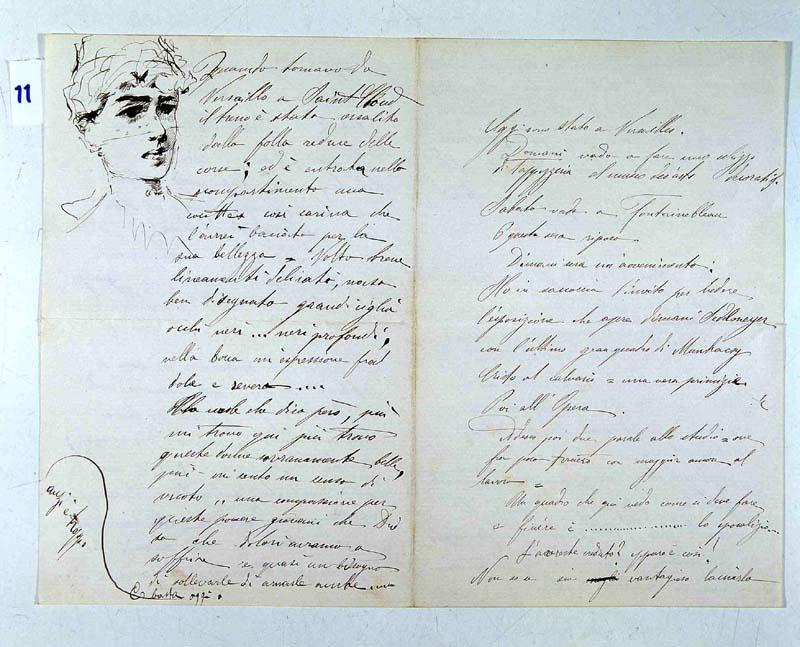 11
Quando tornavo da
Versaillo a Saint Cloud
il treno è stato assalito
dalla folla reduce delle
corse; ed è entrata nello
scompartimento una
così carina che
l'avrei baciata per la
sua bellezza = Volto breve
lineamenti delicati, naso
ben disegnato grandi ciglia
ochi neri ... neri profondi,
nella boca un espressione fra
dole e severa ....
che dica però, più
mi trovo qui più trovo
queste donne sovranamente belle,
più mi sento un senso di
vuoto, una compassione per
queste povere giovani che Dio
sa che dolori avranno a
soffrire e quasi un bisogno
di sollevarle di amarle anche
E basta oggi.
Oggi sono stato a Versailles.
Domani vado a fare uno
di Tappezzeria al museo
Sabato vado a Fontainebleau
E questa sera riposo.
Dimani sera un avvenimento:
Ho in saccoccia l'invito per vedere
l'esposizione che apre dimani Sedlmeyer
con l'ultimo gran quadro di Munkacsy
Cristo al calvario = una vera primizia
Poi all'Opera.
Adesso poi due parole allo studio =
per poco con maggior amore al
lavoro =
Un quadro che qui vedo come si deve fare
= finire è .................. lo
L'avreste creduto? eppure è così!
Non so a vantaggioso lasciarlo